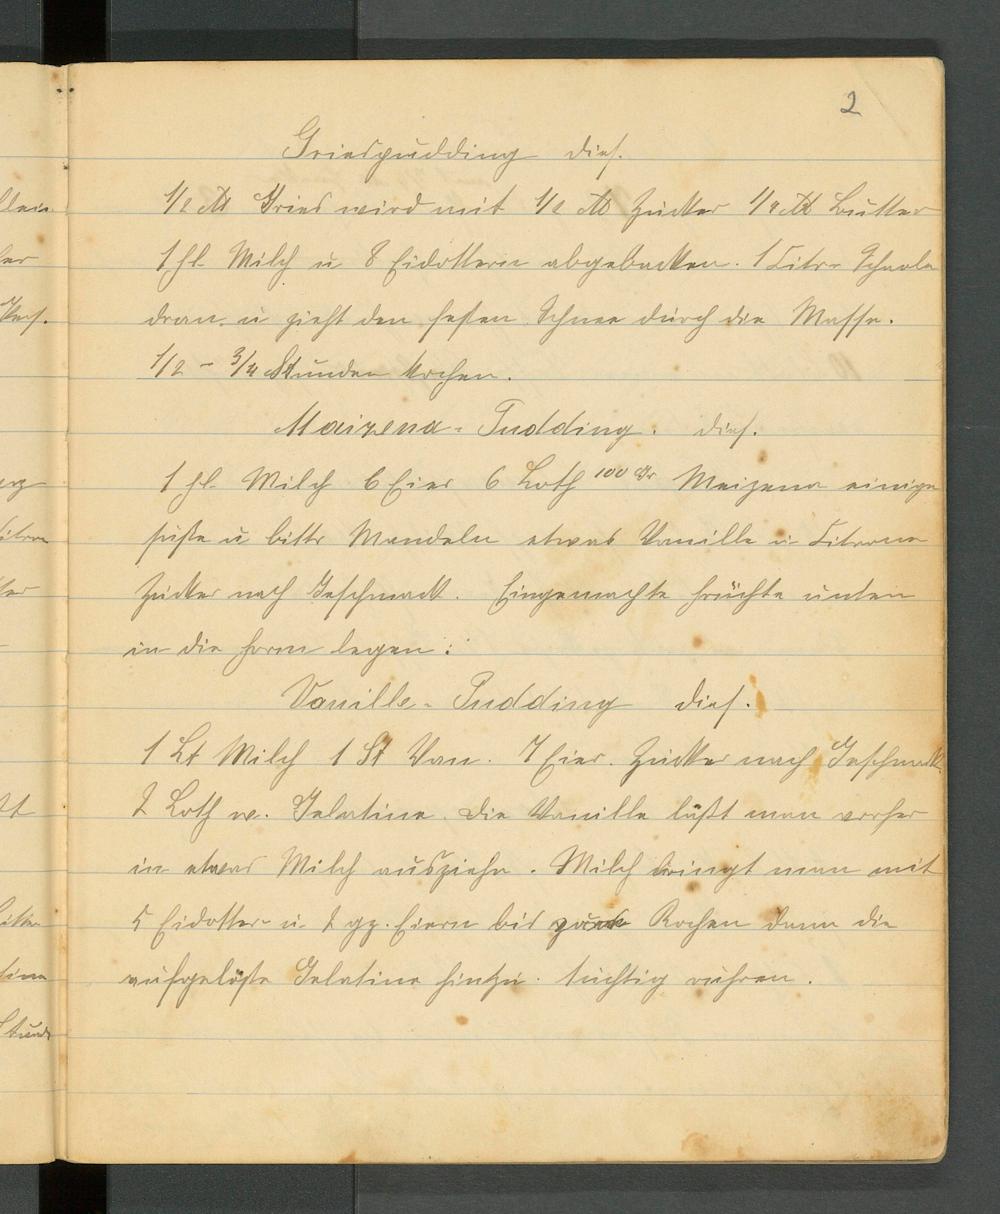 2
Griespudding dies.
1/2 ℔ Gries wird mit 1/2 ℔ Zucker 1/4 ℔ Butter
1 Fl. Milch u 8 Eidottern abgebacken. 1 Citr. Schaale
dran. u zieht den festen Schnee durch die Masse.
1/2 - 3/4 Stunden kochen.
Maizena-Pudding. dies.
1 Fl. Milch 6 Eier 6 Loth 100 Gr Meizena einige
süße u bittr Mandeln etwas Vanille u Citrone
Zucker nach Geschmack. Eingemachte Früchte unten
in die Form legen:
Vanille-Pudding dies.
1 Lt Milch 1 St Van. 7 Eier. Zucker nach Geschmack
2 Loth w. Gelatine. Die Vanille läßt man vorher
in etwas Milch ausziehn. Milch bringt man mit
5 Eidotter u. 2 gz. Eiern bis Kochen dann die
aufgelöste Gelatine hinzu. tüchtig rühren.